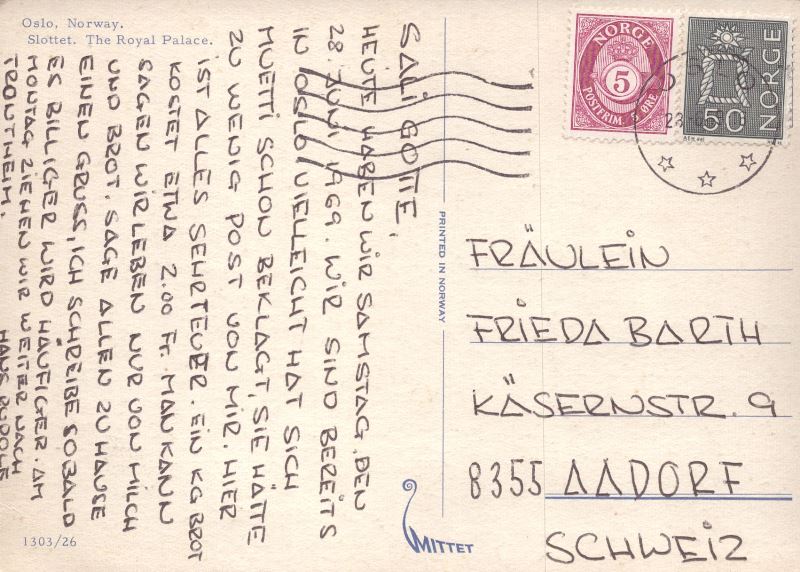 Oslo, Norway.
Slottet. The Royal Palace.
SALI GOTTE,
HEUTE HABEN WIR SAMSTAG, DEN
28. JUNI 1969. WIR SIND BEREITS
IN OSLO VIELLEICHT HAT SICH
MUETTI SCHON BEKLAGT, SIE HÄTTE
ZU WENIG POST VON MIR. HIER
IST ALLES SEHR TEUER. EIN KG BROT
KOSTET ETWA 2.00 Fr. MAN KANN
SAGEN WIR LEBEN NUR VON MILCH
UND BROT. SAGE ALLEN ZU HAUSE
EINEN GRUSS, ICH SCHREIBE SOBALD
ES BILLIGER WIRD HÄUFIGER. AM
MONTAG ZIEHEN WIR WEITER NACH
TRONTHEIM.
HANS RUDOLF
1303/26
PRINTED IN NORWAY
MITTET
NORGE
5
POSTFRIM. 5 ØRE.
NORGE
50
FRÄULEIN
FRIEDA BARTH
KÄSERNSTR. 9
8355 AADORF
SCHWEIZ